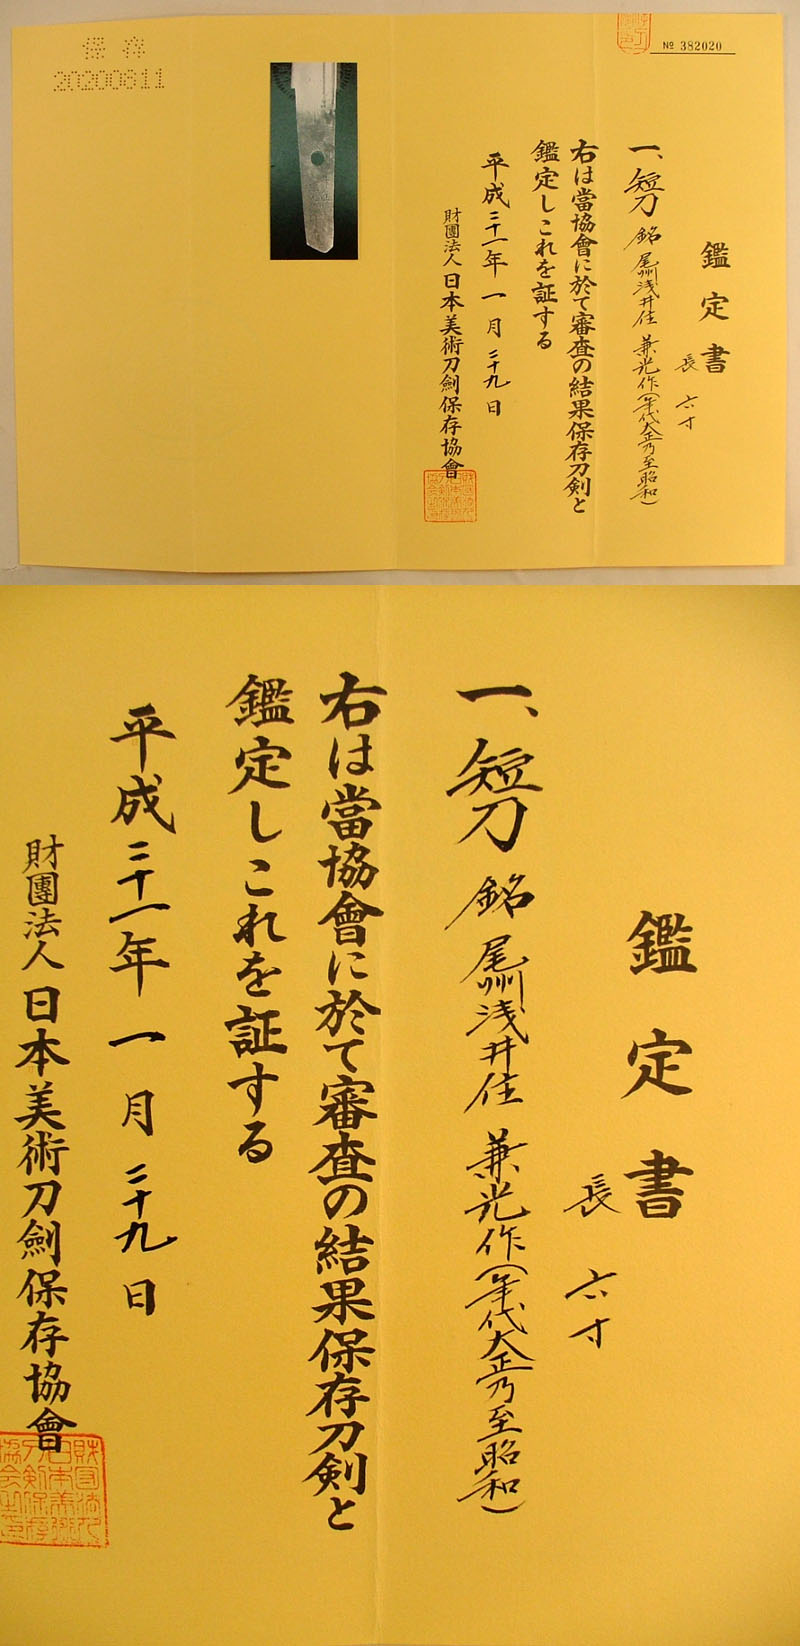 保存
20200611
№ 382020
鑑定書
長 六寸
一、短刀 銘 尾州浅井住 兼光作(年代大正乃至昭和)
右は當協會に於て審査の結果保存刀剣と
鑑定しこれを証する
平成二十一年 一月 二十九日
財團法人 日本美術刀劍保存協會
鑑定書
長 六寸
一、短刀 銘 尾州浅井住 兼光作(年代大正乃至昭和)
右は當協會に於て審査の結果保存刀剣と
鑑定しこれを証する
平成二十一年 一月 二十九日
財團法人 日本美術刀劍保存協會